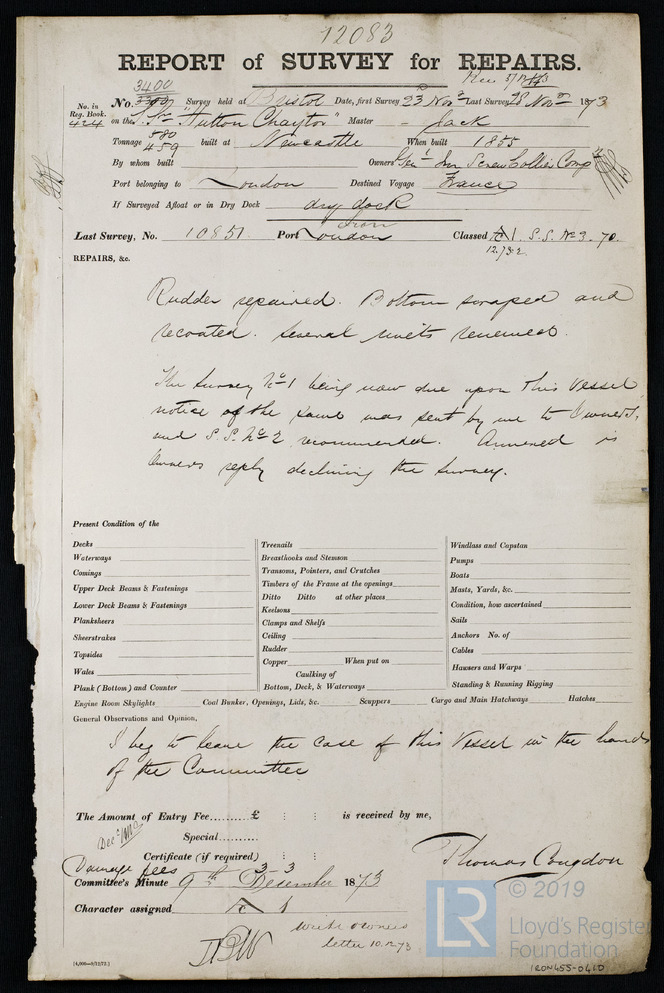 12083
REPORT of SURVEY for REPAIRS.
Rec 3/12/73
3400
No. in Reg. Book. No. 3307 Survey held at Bristol Date, first Survey 23 Novr Last Survey 28 Novr 1873
424 on the "Hutton Chaytor" Master - Jack
Tonnage 580 459 built at Newcastle When built 1855
By whom built Owners Genl Iron Screw Collier Compy
Port belonging to London Destined Voyage France
If Surveyed Afloat or in Dry Dock dry dock
Iron
Last Survey, No. 10851 Port London Classed A 1. S.S. No 3. 70.
12.72.
REPAIRS, &c.
Rudder repaired. Bottom scraped and
recoated. Several rivets renewed.
The Survey No 1 being now due upon this Vessel
notice of the same was sent by me to Owners,
and S.S. No 2 recommended. Annexed is
Owners reply declining the Survey.
Present Condition of the
Decks
Waterways
Comings
Upper Deck Beams & Fastenings
Lower Deck Beams & Fastenings
Planksheers
Sheerstrakes
Topsides
Wales
Plank (Bottom) and Counter
Treenails
Breasthooks and Stemson
Transoms, Pointers, and Crutches
Timbers of the Frame at the openings
Ditto Ditto at other places
Keelsons
Clamps and Shelfs
Ceiling
Rudder
Copper When put on
Caulking of
Bottom, Deck, & Waterways
Windlass and Capstan
Pumps
Boats
Masts, Yards, &c.
Condition, how ascertained
Sails
Anchors No. of
Cables
Hawsers and Warps
Standing & Running Rigging
Engine Room Skylights Coal Bunker, Openings, Lids, &c. Scuppers Cargo and Main Hatchways Hatches
General Observations and Opinion,
I beg to leave the case of this Vessel in the hands
of the Committee
The Amount of Entry Fee.......... £ : : is received by me,
Special..........
Certificate (if required) : :
Damage fees 3 3
Thomas Congdon
Committee's Minute 9th December 1873
Character assigned A 1
Write owners
letter 10.12.73
[4,000—9/12/72.]
LR
© 2019
Lloyd's Register
Foundation
IRON455-0410